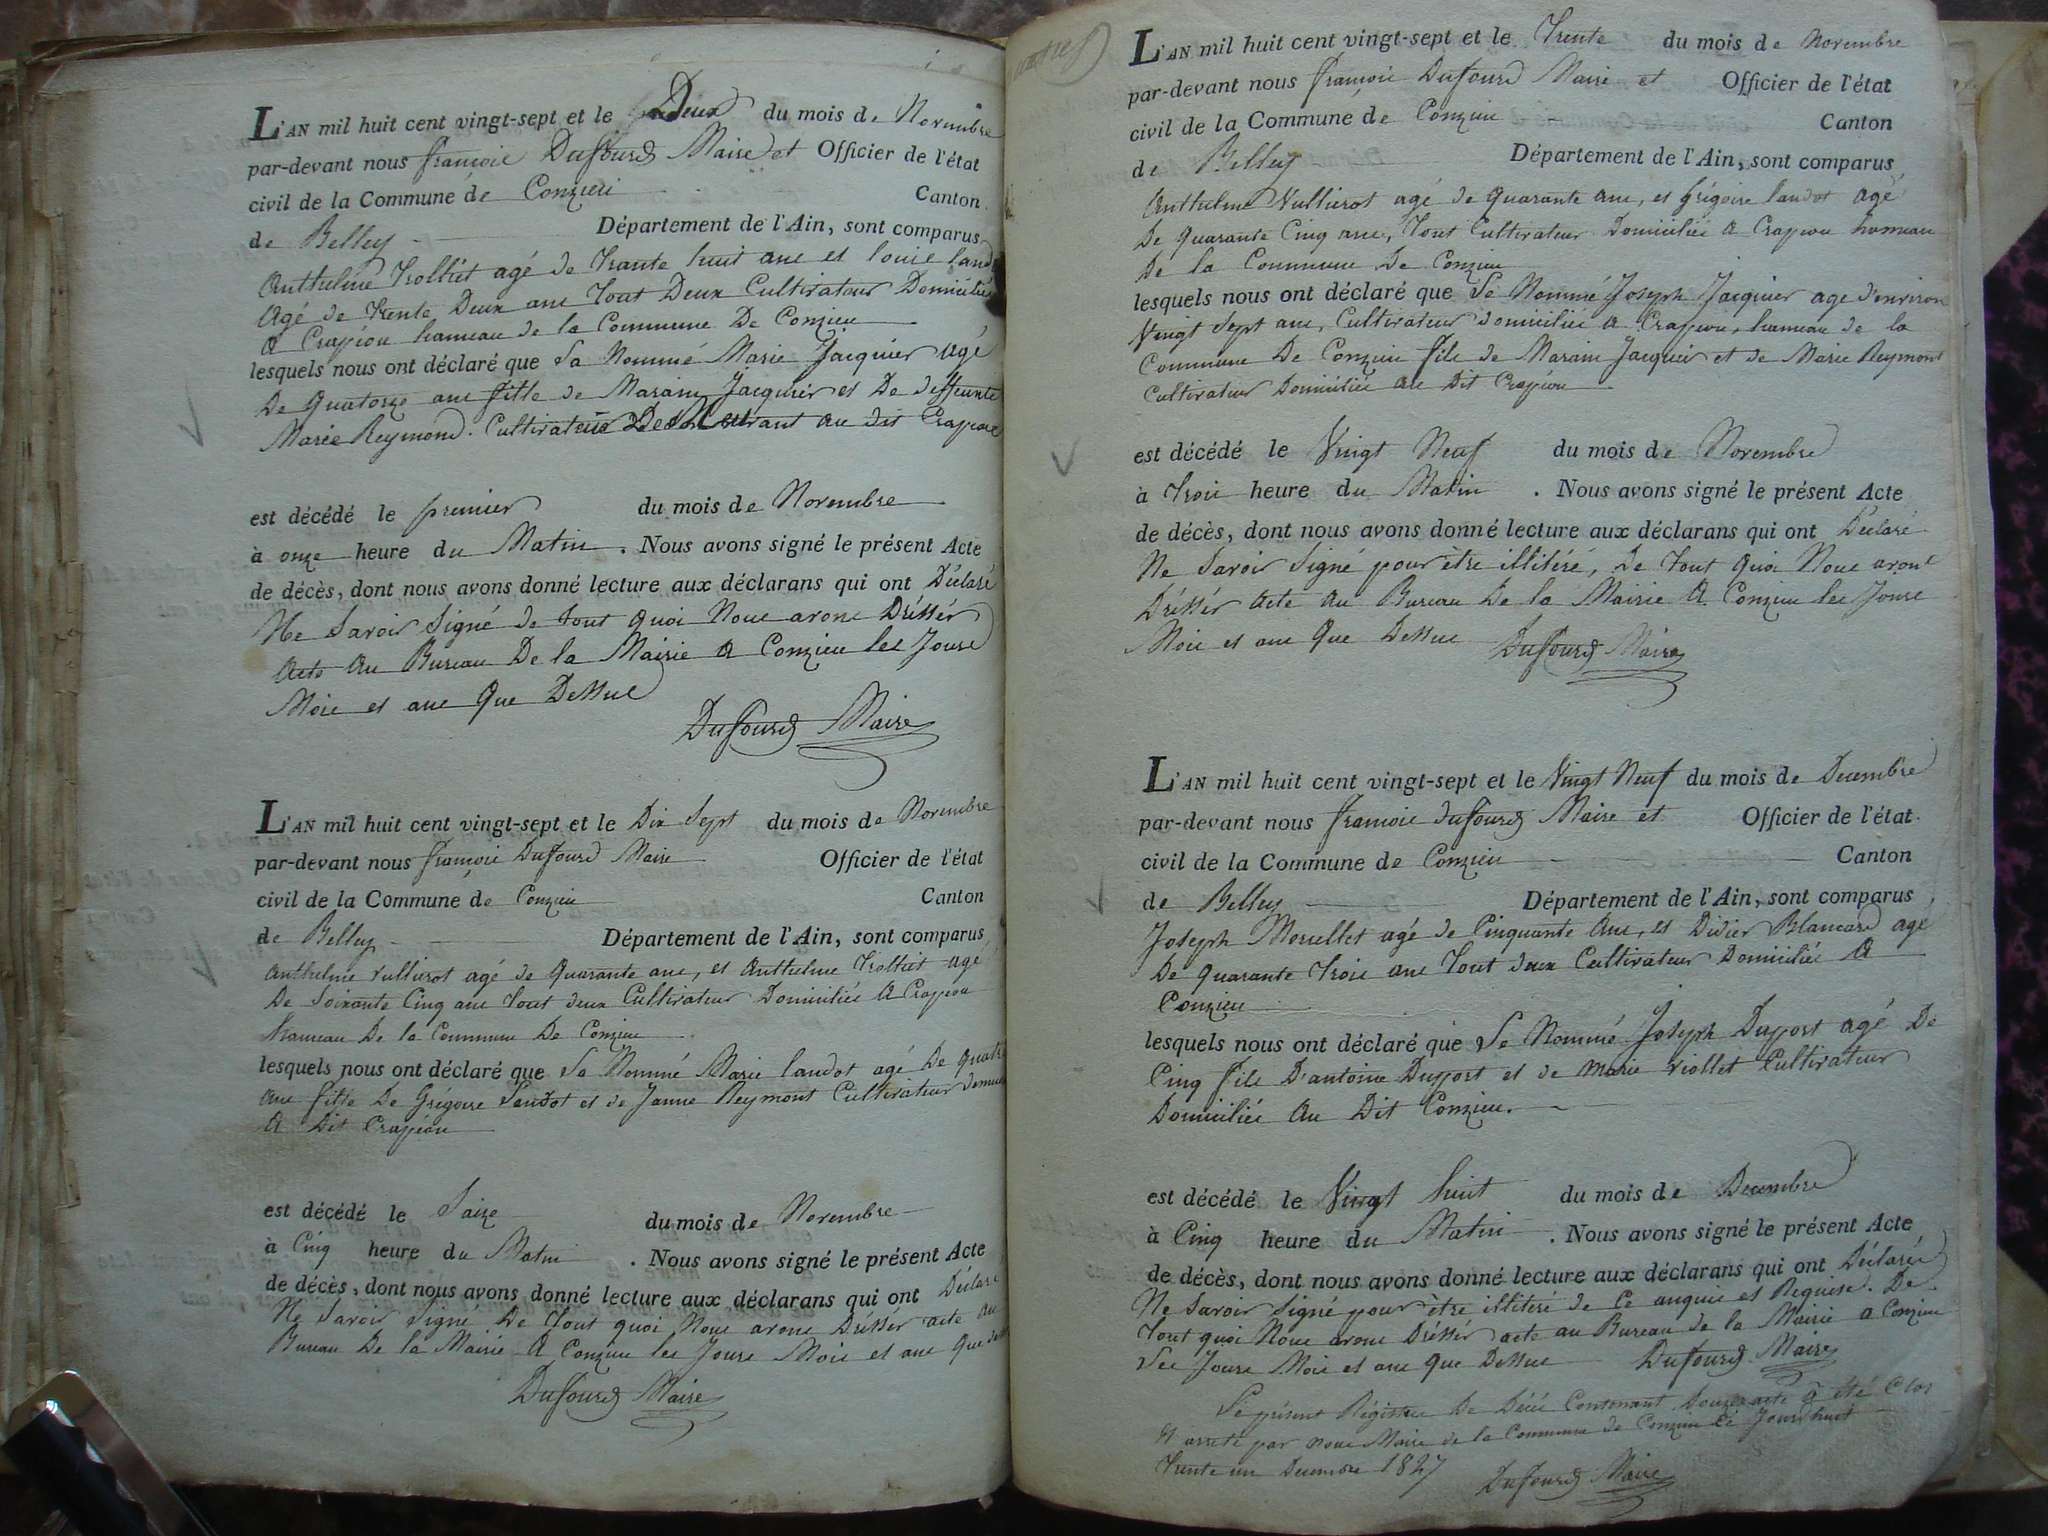 L'AN mil huit cent vingt-sept et le Deux du mois de Novembre
par-devant nous françoie Dufourd Maire et Officier de l'état
civil de la Commune de Conzieu Canton
de Belley Département de l'Ain, sont comparus
Anthelme Trolliet agé de Trante huit ane et louie land
Agé de Trente Deux ane Tout Deux Cultivateur Domicilié
A Crapéou hameau de la Commune De Conzieu
lesquels nous ont déclaré que La Nommé Marie Jacquier agé
De Quatorze ane fille de Marain Jacquier et De deffeunte
Marie Reymond. Cultivateur Demeurant au dit Crapéou
est décédé le premier du mois de Novembre
à onze heure du Matin. Nous avons signé le présent Acte
de décès, dont nous avons donné lecture aux déclarans qui ont Déclaré
Ne Savoir Signé de tout quoi Noue avone Drésser
Acte Au Bureau De la Mairie A Conzieu les Joure
Moie et ane Que Dessue
Dufourd Maire
L'AN mil huit cent vingt-sept et le Dix Sept du mois de Novembre
par-devant nous françoie Dufourd Maire Officier de l'état
civil de la Commune de Conzieu Canton
de Belley Département de l'Ain, sont comparus
Anthelme Vullierot agé de Quarante ane, et Anthelme Trolliet agé
De Soixante Cinq ane Tout deux Cultivateur Domicilié A Crapéou
hameau De la Commune De Conzieu
lesquels nous ont déclaré que La Nommé Marie landot agé De quatre
ane fille De Grégoire Landot et de Janne Reymont Cultivateur
A Dit Crapéou
est décédé le Saize du mois de Novembre
à Cinq heure du Matin. Nous avons signé le présent Acte
de décès, dont nous avons donné lecture aux déclarans qui ont Déclaré
Ne Savoir Signé De Tout quoi Noue avone Drésser acte au
Bureau De la Mairie A Conzieu les Joure Moie et ane Que
Dufourd Maire
L'AN mil huit cent vingt-sept et le Trente du mois de Novembre
par-devant nous françoie Dufourd Maire et Officier de l'état
civil de la Commune de Conzieu Canton
de Belley Département de l'Ain, sont comparus
Anthelme Vullierot agé de Quarante ane, et grégoire landot agé
De Quarante Cinq ane, Tout Cultivateur Domicilié A Crapéou hameau
De la Commune De Conzieu
lesquels nous ont déclaré que Le Nommé Joseph Jacquier age d'environ
Vingt Sept ane, Cultivateur domicilié A Crapéou, hameau de la
Commune De Conzieu file de Marain Jacquier et de Marie Reymont
Cultivateur Domicilié au Dit Crapéou
est décédé le Vingt Neuf du mois de Novembre
à Troie heure du Matin. Nous avons signé le présent Acte
de décès, dont nous avons donné lecture aux déclarans qui ont Déclaré
Ne Savoir Signé pour être illitéré, De Tout Quoi Noue avone
Drésser Acte Au Bureau De la Mairie A Conzieu les Joure
Moie et ane Que Dessue Dufourd Maire
L'AN mil huit cent vingt-sept et le Vingt Neuf du mois de Decembre
par-devant nous françoie dufourd Maire et Officier de l'état
civil de la Commune de Conzieu Canton
de Belley Département de l'Ain, sont comparus
Joseph Morellet agé de Cinquante Ane, et Didier Blancard agé
De Quarante Troie ane Tout deux Cultivateur Domicilié A
Conzieu
lesquels nous ont déclaré que Le Nommé Joseph Duport agé De
Cinq file D'antoine Dupport et de marie Viollet Cultivateur
Domicilié Au Dit Conzieu.
est décédé le Vingt huit du mois de Decembre
à Cinq heure du Matin. Nous avons signé le présent Acte
de décès, dont nous avons donné lecture aux déclarans qui ont Déclaré
Ne Savoir Signé pour être illiteré de Ce enquie et Requise. De
Tout quoi Noue avone Drésser acte au Bureau de la Mairie a Conzieu
Lee Joure Moie et ane Que Dessue Dufourd Maire
Le présent Régistre De Décé Contenant Douze acte a été Clos
et arreté par noue Maire de la Commune de Conzieu Ce Jourdhuit
Trente un Decembre 1827 Dufourd Maire